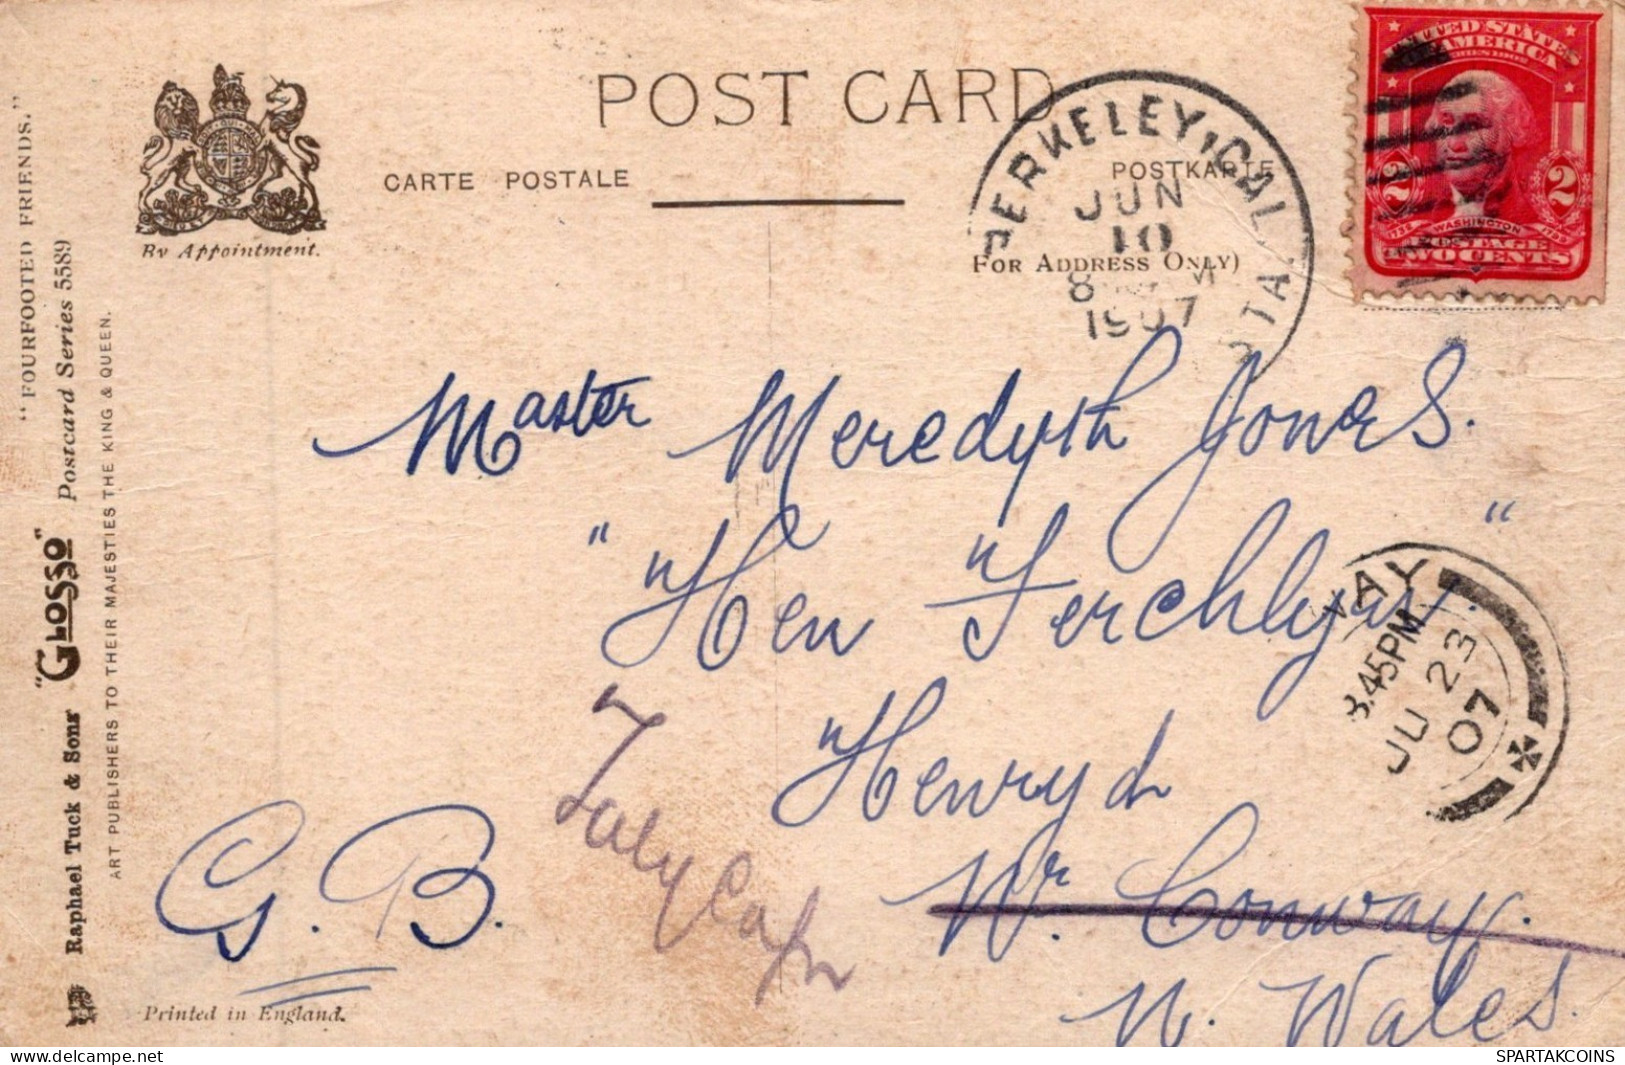 POST CARD
CARTE POSTALE
POSTKARTE
(FOR ADDRESS ONLY)
By Appointment.
"FOURFOOTED FRIENDS."
Raphael Tuck & Sons' "GLOSSO" Postcard Series 5589
ART PUBLISHERS TO THEIR MAJESTIES THE KING & QUEEN.
UNITED STATES
OF AMERICA
SERIES 1902
2 2
1732 WASHINGTON 1799
POSTAGE
TWO CENTS
BERKELEY, CAL. STA.
JUN
10
8 M
1907
Master Meredyth Jones.
"Hen Ferchlyn"
Henryd
Nr. Conway.
N. Wales.
G. B.
Talycafn
WAY
3.45PM
JU 23
07
Printed in England.
SPARTAKCOINS